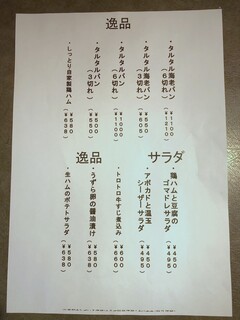 逸品
・タルタル海老パン
（6切れ）
￥1100
（￥1210）
・タルタル海老パン
（3切れ）
￥550
（￥605）
・タルタルパン
（6切れ）
￥1000
（￥1100）
・タルタルパン
（3切れ）
￥500
（￥550）
・しっとり自家製鶏ハム
￥580
（￥638）
サラダ
・鶏ハムと豆腐の
ゴマドレサラダ
￥450
（￥495）
・アボカドと温玉
シーザーサラダ
￥450
（￥495）
逸品
・トロトロ牛すじ煮込み
￥600
（￥660）
・うずら卵の醤油漬け
￥580
（￥638）
・生ハムのポテトサラダ
￥580
（￥638）